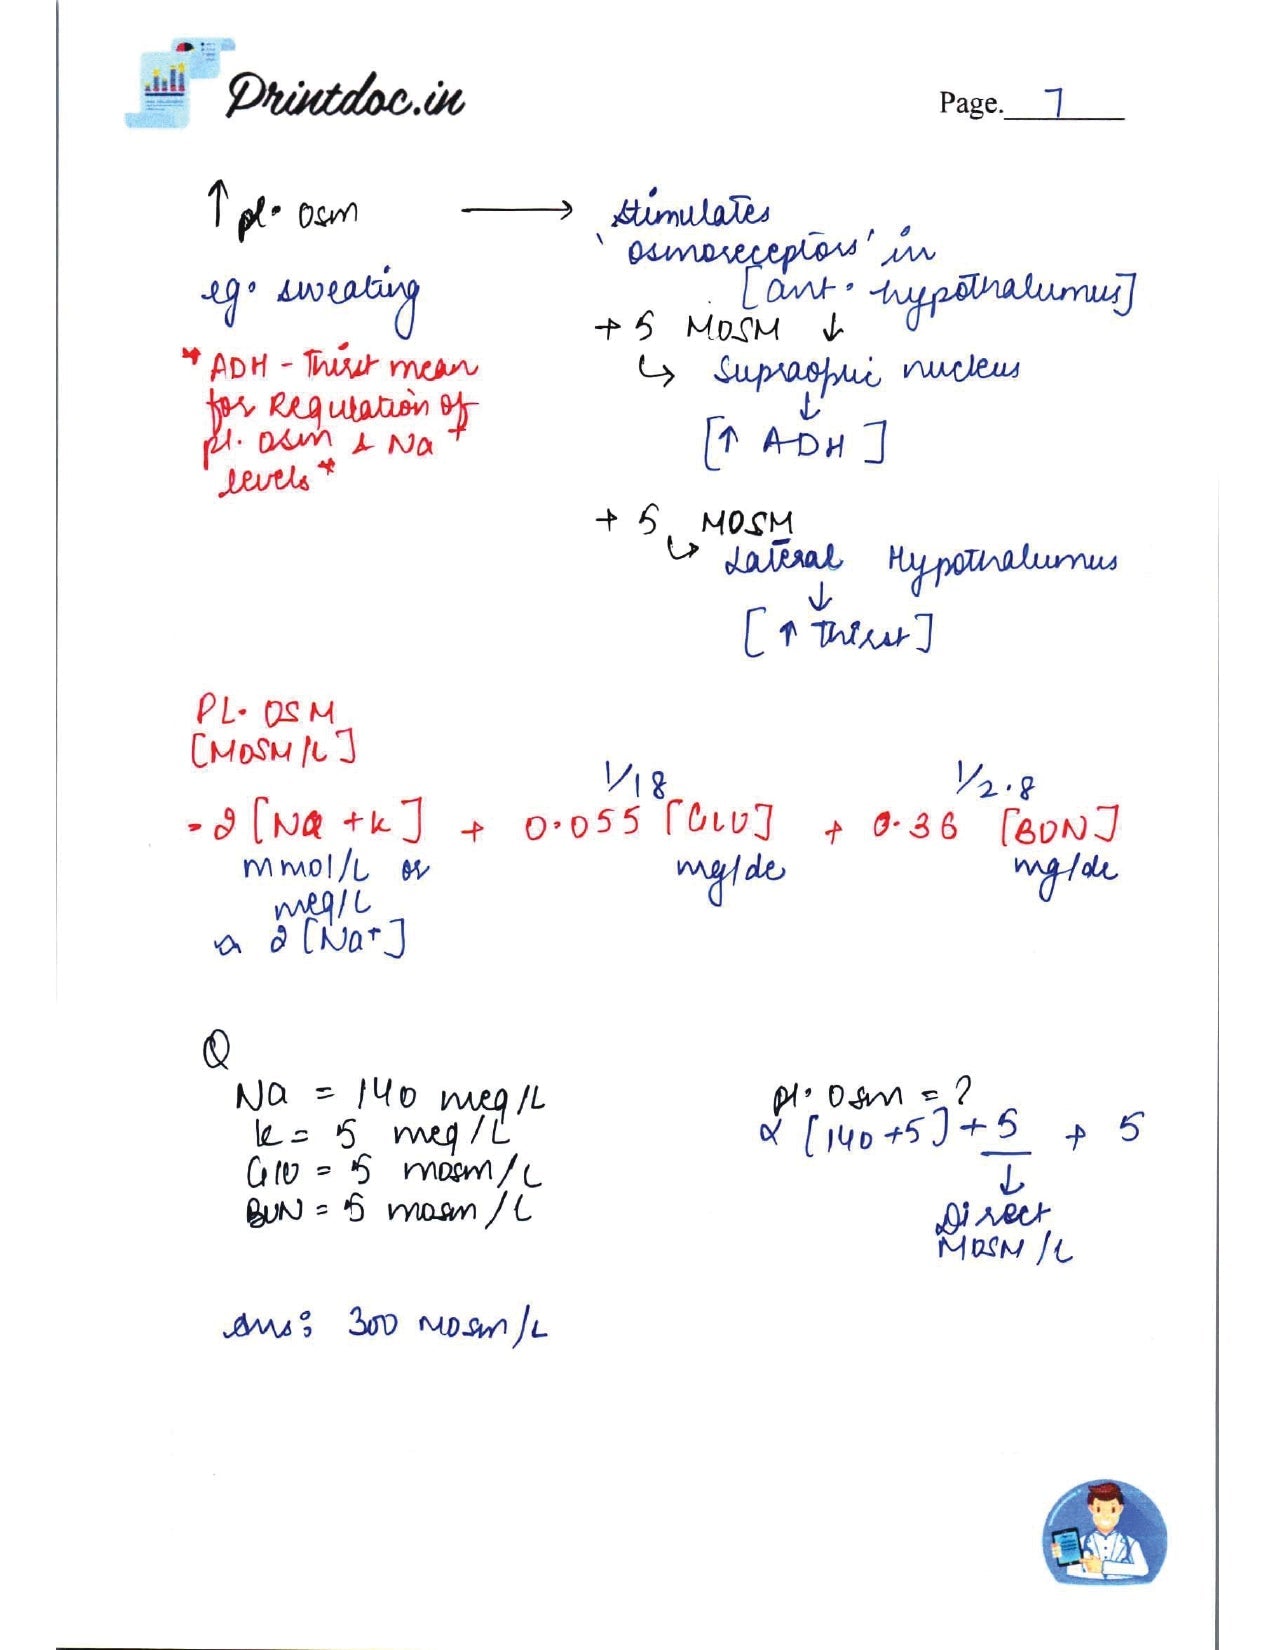 Printdoc.in
Page. 7
↑ pl. osm → stimulates
'osmoreceptors' in
[ant. hypothalumus]
eg. sweating
+ 5 MOSM ↓
↳ Supraoptic nucleus
↓
[↑ ADH]
* ADH - Thirst mean
for Regulation of
pl. osm & Na+
levels *
+ 5 MOSM
↳ Lateral Hypothalumus
↓
[↑ Thirst]
PL. OSM
[MOSM/L]
1/18 1/2.8
= 2 [Na + K] + 0.055 [GLU] + 0.36 [BUN]
mmol/L or mg/dl mg/dl
meq/L
2 [Na+]
Q
Na = 140 meq/L
K = 5 meq/L
Glu = 5 mosm/L
BUN = 5 mosm/L
pl. Osm = ?
2 [140 + 5] + 5 + 5
↓
Direct
MOSM/L
Ans: 300 MOsm/L